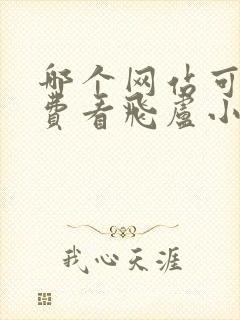 哪个网站可
费看飞卢小
我心天涯